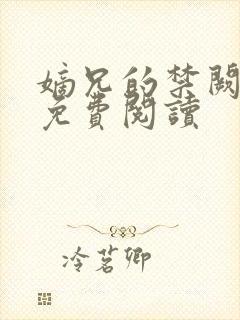 嫡兄的禁闕
免費閱讀
冷茗卿